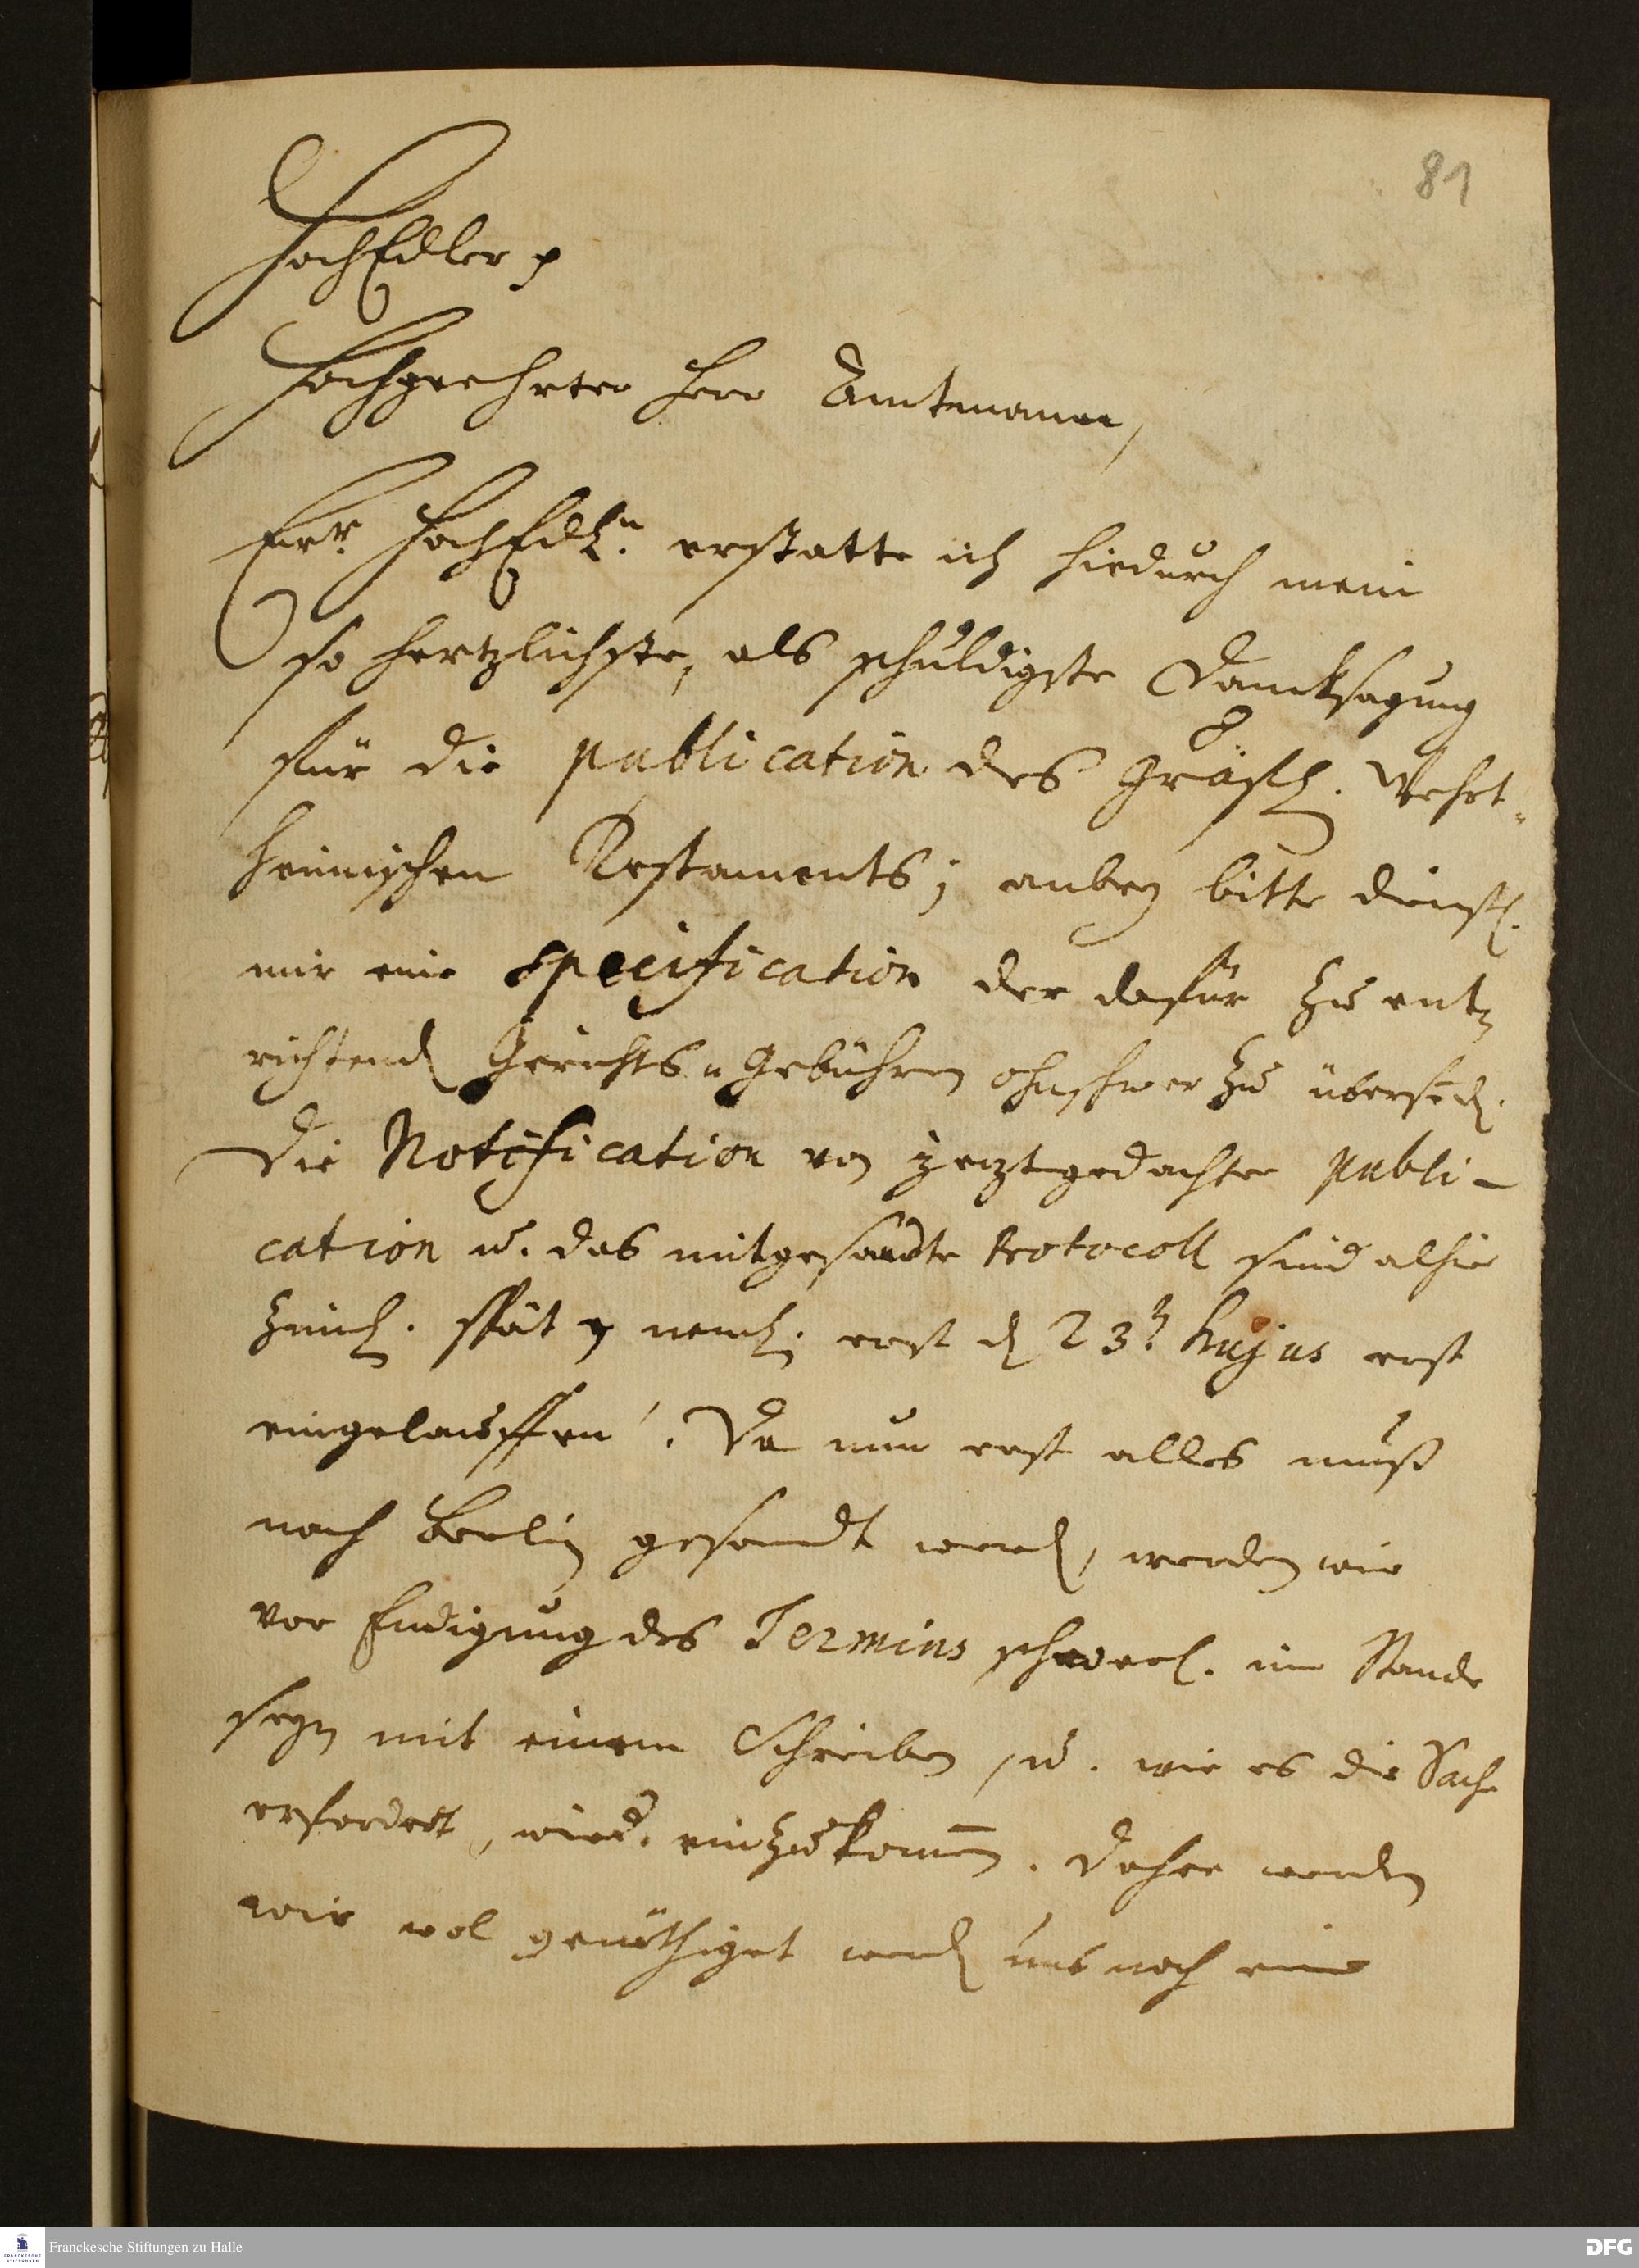 81
HochEdler p
Hochgeehrter Herr Amtmann,
Ewr. HochEdl.n erstatte ich hiedurch mein
so hertzlichste, als schuldigste Dancksagung
für die publication des Gräfl. Wert-
heimischen Testaments; anbey bitte dienstl.
mir eine specification der dafür zu ent-
richtend Gerichts-Gebühren ohnschwer zu übersend.
Die Notification von jetztgedachter publi-
cation u. das mitgesandte Protocoll sind alhie
zieml. spät p neml. erst d 23t hujus erst
eingelauffen. Da nun erst alles muß
nach Berlin gesandt werd, werden wir
vor Endigung des Termins schwerl. im Stande
seyn mit einem Schreiben, u. wie es die Sache
erfordert, wied. einzukomen. Daher werden
wir wol genöthiget werd uns noch eine
Franckesche Stiftungen zu Halle
DFG